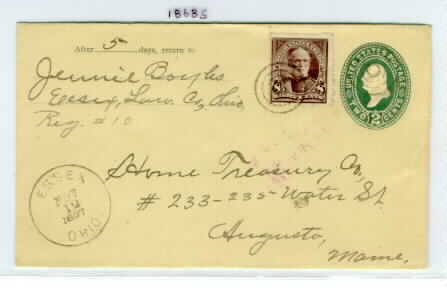 18685
After 5 days, return to
Jennie Boyles
Essex, Law. Co, Ohio,
Reg. # 10
UNITED STATES POSTAGE
TWO 2 CENTS
Home Treasury Co,
# 233-235 Water St
Augusta,
Maine.
ESSEX
1897
OHIO